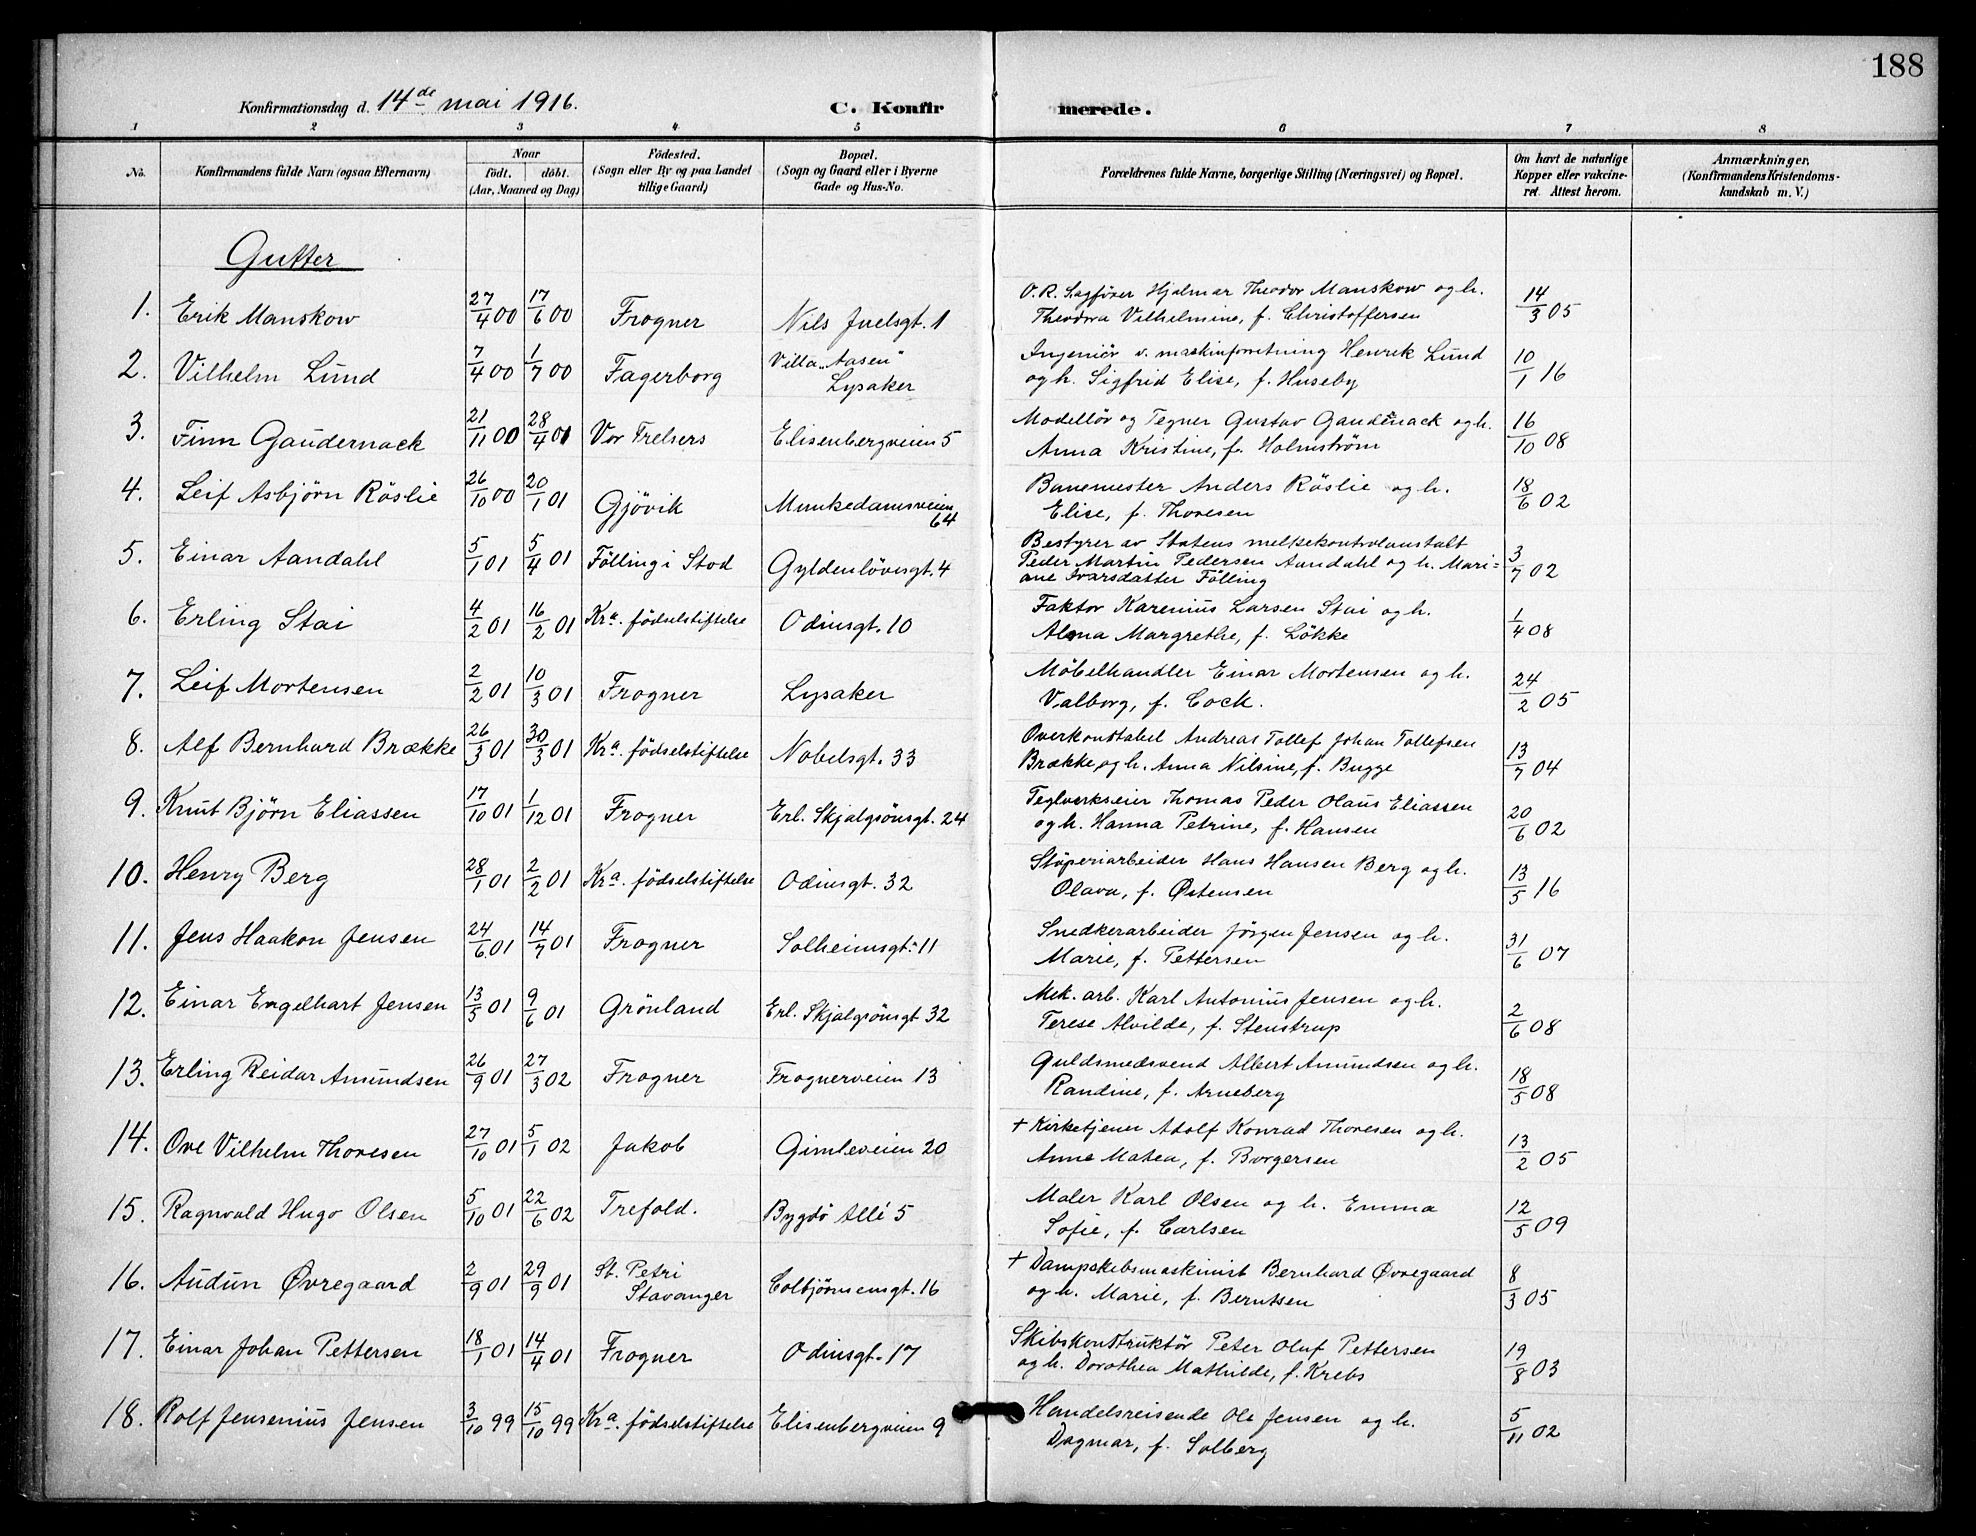 188
Konfirmationsdag d. 14de mai 1916.
C. Konfirmerede.
1 2 3 4 5 6 7 8
No. Konfirmandens fulde Navn (ogsaa Efternavn) Naar født. døbt. (Aar, Maaned og Dag) Fødested. (Sogn eller By og paa Landet tillige Gaard) Bopæl. (Sogn og Gaard eller i Byerne Gade og Hus-No. Forældrenes fulde Navne, borgerlige Stilling (Næringsvei) og Bopæl. Om havt de naturlige Kopper eller vakcineret. Attest herom. Anmærkninger, (Konfirmandens Kristendomskundskab m. V.)
Gutter
1. Erik Manskow 27/4 00 17/6 00 Frogner Nils Juelsgt. 1 O.R. Sagfører Hjalmar Theodor Manskow og h. Theodora Vilhelmine, f. Christoffersen 14/3 05
2. Vilhelm Lund 7/4 00 1/7 00 Fagerborg Villa "Aasen" Lysaker Ingeniör v. maskinforretning Henrik Lund og h. Sigfrid Elise, f. Huseby 10/1 16
3. Finn Gaudernack 21/11 00 28/4 01 Vor Frelsers Elisenbergveien 5 Modellör og Tegner Gustav Gaudernack og h. Anna Kristine, f. Holmström 16/10 08
4. Leif Asbjørn Röslie 26/10 00 20/1 01 Gjövik Munkedamsveien 64 Banemester Anders Röslie og h. Elise, f. Thoresen 18/6 02
5. Einar Aandahl 5/1 01 5/4 01 Fölling i Stod Gyldenlövesgt. 4 Bestyrer av Statens melkekontrolanstalt Peder Martin Pedersen Aandahl og h. Mari=ane Ivarsdatter Fölling 3/7 02
6. Erling Stai 4/2 01 16/2 01 Kra. födselstiftelse Odinsgt. 10 Faktor Karenius Larsen Stai og h. Alma Margrethe, f. Lökke 1/4 08
7. Leif Mortensen 2/2 01 10/3 01 Frogner Lysaker Möbelhandler Einar Mortensen og h. Valborg, f. Cock. 24/2 05
8. Alf Bernhard Brække 26/3 01 30/3 01 Kra. födselstiftelse Nobelsgt. 33 Overkonstabel Andreas Tollef Johan Tollefsen Brække, og h. Anna Nilsine, f. Bugge 13/7 04
9. Knut Bjørn Eliassen 17/10 01 1/12 01 Frogner Erl. Skjalgsönsgt. 24 Teglverkseier Thomas Peder Olaus Eliassen og h. Hanna Petrine, f. Hansen 20/6 02
10. Henry Berg 28/1 01 2/2 01 Kra. födselstiftelse Odinsgt. 32 Stöperiarbeider Hans Hansen Berg og h. Olava, f. Østensen 13/5 16
11. Jens Haakon Jensen 24/6 01 14/7 01 Frogner Solheimsgt. 11 Snedkerarbeider Jörgen Jensen og h. Marie, f. Pettersen 31/6 07
12. Einar Engelhart Jensen 13/5 01 9/6 01 Grönland Erl. Skjalgsönsgt 32 Mek. arb. Karl Antonius Jensen og h. Terese Alvilde, f. Stenstrup 2/6 08
13. Erling Reidar Amundsen 26/9 01 27/3 02 Frogner Frognerveien 13 Guldsmedsvend Albert Amundsen og h. Randine, f. Arneberg 18/5 08
14. Ove Vilhelm Thoresen 27/10 01 5/1 02 Jakob Gimleveien 20 + Kirketjener Adolf Konrad Thoresen og h. Anne Matea, f. Borgersen 13/2 05
15. Ragnvald Hugo Olsen 5/10 01 22/6 02 Trefold. Bygdö Allé 5 Maler Karl Olsen og h. Emma Sofie, f. Carlsen 12/5 09
16. Audun Øvregaard 2/9 01 29/9 01 St. Petri Stavanger Colbjörnsensgt. 16 + Dampskibsmaskinist Bernhard Øvregaard og h. Marie, f. Berntsen 8/3 05
17. Einar Johan Pettersen 18/1 01 14/4 01 Frogner Odinsgt. 17 Skibskonstruktör Peter Oluf Pettersen og h. Dorothea Mathilde, f. Krebs 19/8 03
18. Rolf Jensenius Jensen 3/10 99 15/10 99 Kra. födselstiftelse Elisenbergveien 9 Handelsreisende Ole Jensen og h. Dagmar, f. Solberg 5/11 02